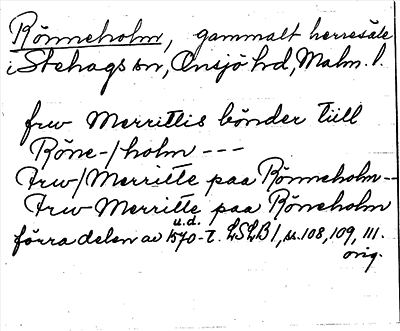 Rönneholm, gammalt herresäte
i Stehags sn, Onsjö hd, Malm. l.
frw Merrittis bönder till
Röne-/holm ---
Frw/Merritte paa Rönneholm --
Frw Merritte paa Röneholm
u.d.
förra delen av 1570-t. LSLB 1, ss. 108, 109, 111.
orig.